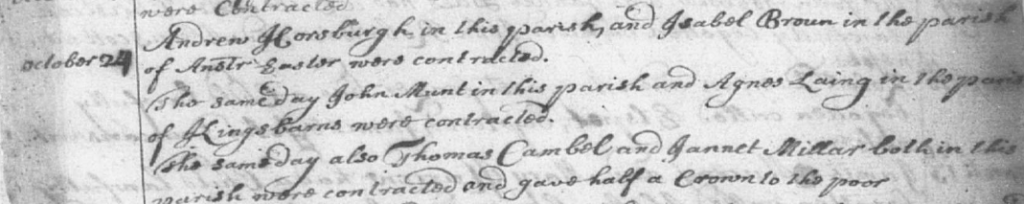 were Contracted
Andrew Horsburgh in this parish, and Isabel Broun in the parish
October 24
of Anstr Easter were contracted.
The same day John Munt in this parish and Agnes Laing in the paris
of Kingsbarns were contracted.
The same day also Thomas Cambel and Jannet Millar both in this
parish were contracted and gave half a Crown to the poor